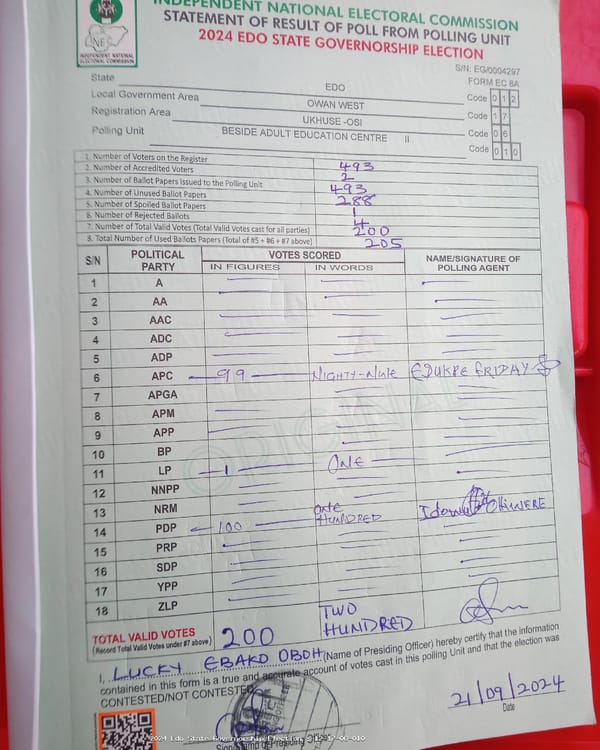 INDEPENDENT NATIONAL ELECTORAL COMMISSION
STATEMENT OF RESULT OF POLL FROM POLLING UNIT
2024 EDO STATE GOVERNORSHIP ELECTION
INEC
INDEPENDENT NATIONAL ELECTORAL COMMISSION
S/N: EG/0004297
FORM EC 8A
State EDO Code 0 1 2
Local Government Area OWAN WEST Code 1 7
Registration Area UKHUSE -OSI Code 0 6
Polling Unit BESIDE ADULT EDUCATION CENTRE II Code 0 1 0
1. Number of Voters on the Register 493
2. Number of Accredited Voters 2
3. Number of Ballot Papers Issued to the Polling Unit 493
4. Number of Unused Ballot Papers 288
5. Number of Spoiled Ballot Papers 1
6. Number of Rejected Ballots 4
7. Number of Total Valid Votes (Total Valid Votes cast for all parties) 200
8. Total Number of Used Ballots Papers (Total of #5 + #6 + #7 above) 205
S/N POLITICAL PARTY VOTES SCORED NAME/SIGNATURE OF POLLING AGENT
IN FIGURES IN WORDS
1 A
2 AA
3 AAC
4 ADC
5 ADP
6 APC 99 NIGHTY-NINE EDUKPE FRIDAY
7 APGA
8 APM
9 APP
10 BP
11 LP 1 ONE
12 NNPP
13 NRM
14 PDP 100 ONE HUNDRED Idowu
15 PRP
16 SDP
17 YPP
18 ZLP
TOTAL VALID VOTES 200 TWO HUNDRED
(Record Total Valid Votes under #7 above)
I, LUCKY EBAKO OBOH (Name of Presiding Officer) hereby certify that the information
contained in this form is a true and accurate account of votes cast in this polling Unit and that the election was
CONTESTED/NOT CONTESTED
21/09/2024
Date